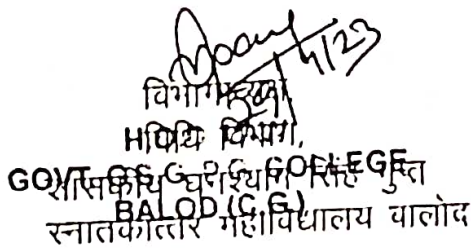 4/23
विभागाध्यक्ष
विधि विभाग,
GOVT. G.S.G. P.G. COLLEGE
शासकीय घनश्याम सिंह गुप्त
BALOD (C.G.)
स्नातकोत्तर महाविद्यालय बालोद